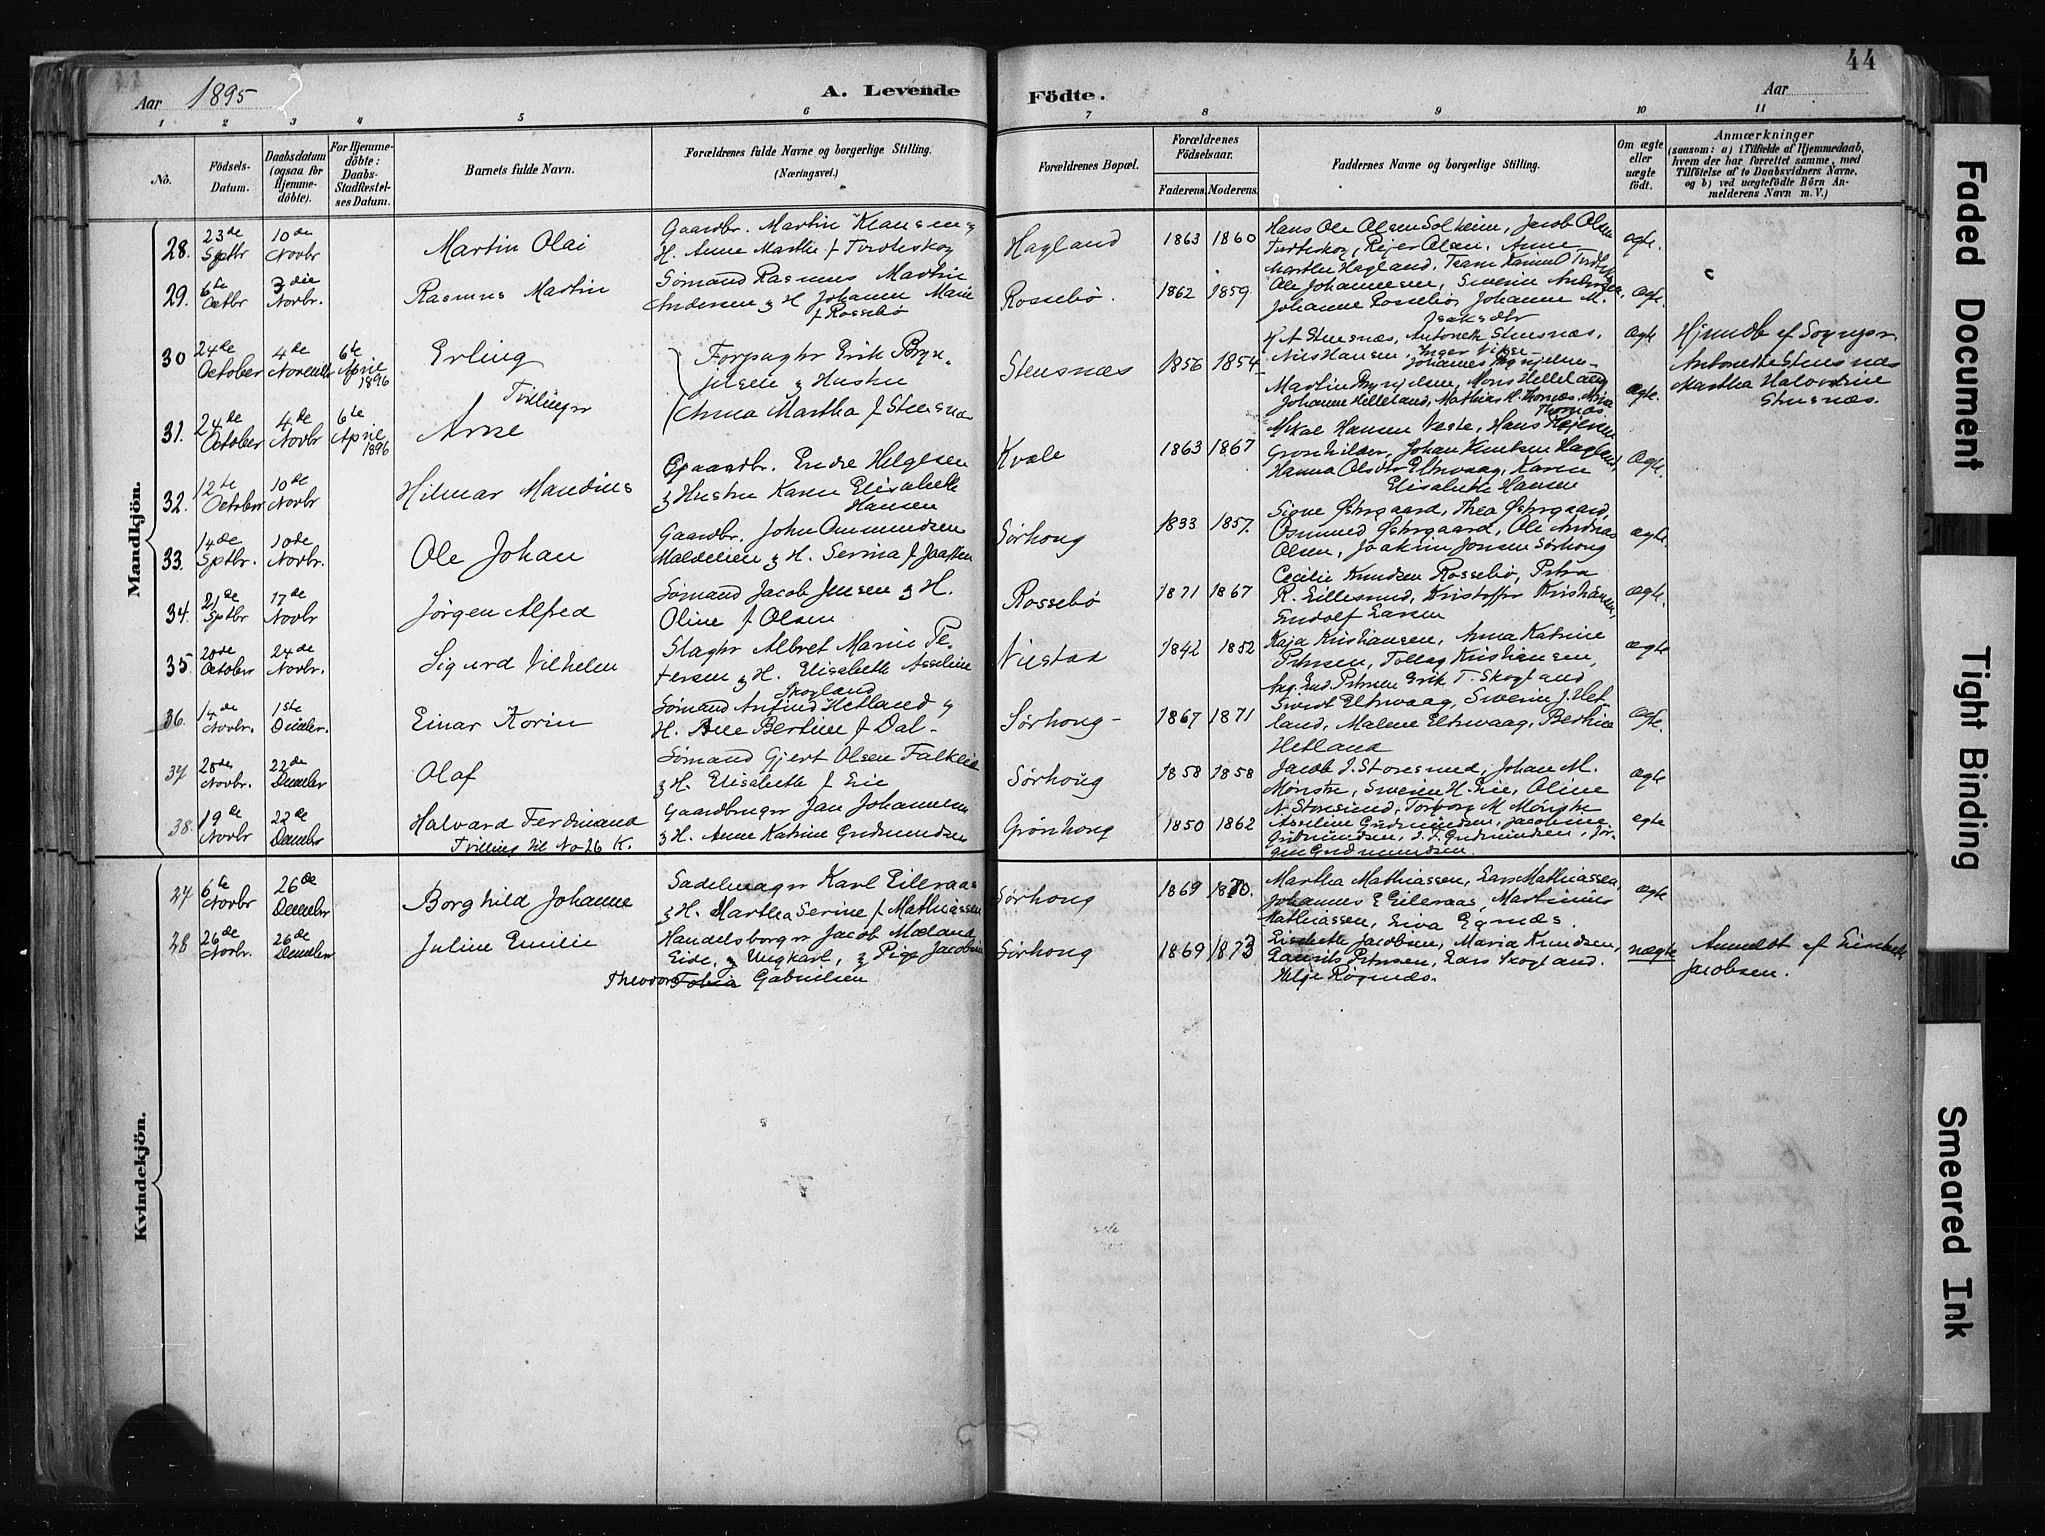 44
Aar 1895
A. Levende
Födte.
Aar
1 2 3 4 5 6 7 8 9 10 11
No.
Födsels-Datum.
Daabsdatum (ogsaa for Hjemmedöbte).
For Hjemmedöbte: Daabs-Stadfestelses Datum.
Barnets fulde Navn.
Forældrenes fulde Navne og borgerlige Stilling. (Næringsvei.)
Forældrenes Bopæl.
Forældrenes Födselsaar.
Faderens. Moderens.
Faddernes Navne og borgerlige Stilling.
Om ægte eller uægte födt.
Anmærkninger
(saasom: a) i Tilfælde af Hjemmedaab, hvem der har forrettet samme, med Tilföielse af to Daabsvidners Navne, og b) ved uægtefödte Börn Anmelderens Navn m. V.)
Mandkjön.
28. 23de Sptbr 10de Novbr Martin Olai
Gaardbr. Martin Klausen
H. Anne Marthe f
Hagland 1863 1860
Hans Ole Olsen Solheim, Jacob Olsen
Rejer Olsen, Anne
Marthe Hagland,
ægte.
29. 6te Octbr 3die Novbr. Rasmus Martin
Sömand Rasmus Martin
Andersen & H. Johanne Marie
f Rossebö
Rossebö. 1862 1859
Ole Johannesen, Sverin Andersen,
Johanne Rossebö, Johanne M.
Isaksdtr
ægte.
30 24de October 4de Novembr 6te April 1896 Erling
Forpagtr Erik Bryn-
jelsen & Hustru
Stensnæs 1856 1854
Stensnæs, Antonette Stensnæs,
Nils Hansen, Inger
ægte
Hjemdb af Sognepr.
Antonette Stensnæs
Martha Halvardine
Stensnæs.
Tvillinger
31. 24de October 4de Novbr 6te April 1896 Arne
Anna Martha f Stensnæs
Johanne Helleland, Mathias H. Thornæs,
Thornæs
ægte.
32. 12te October 10de Novbr Hilmar Mandius
Gaardbr. Endre Helgesen
& Hustru Karen Elisabeth
Hansen
Kvale 1863 1867
Mikal Hansen Veste, Hans
Johan Knutsen Hagland,
Hanna Olsdtr Eltervaag, Karen
Elisabeth Hansen
ægte.
33. 14de Sptbr. 10de Novbr. Ole Johan
Gaardbr. John Ommundsen
& H. Serina f
Sørhoug 1833 1857.
Signe Østrgaard, Thea Østrgaard,
Osmund Østrgaard, Ole Andreas
Olsen, Joakim Jonsen Sørhoug
ægte.
34. 21de Sptbr 17de Novbr Jörgen Alfred
Sömand Jacob Jensen & H.
Oline f Olsen
Rossebö 1871 1867
Cecilie Knudsen Rossebö, Petra
R. Lillesund, Kristoffer Kristiansen,
Gudolf Larsen
ægte.
35. 20de October 24de Novbr. Sigurd Vilhelm
Slagtr Albret Marin Pe-
tersen & H. Elisabeth Asseline
Skogland
1842 1852
Kaja Kristiansen, Anna Katrine
Petersen, Tollag Kristiansen,
Petersen Erik T. Skogland
ægte
36. 14de Novbr. 1ste Decmbr. Einar Korin
Sömand Anfind Hetland &
H. Ane Bertine f Dal-
Sørhoug- 1867 1871
Sivert Eltervaag, Sverin J. Het-
land, Malene Eltervaag, Berthine
Hetland
ægte.
37 28de Novbr. 22de Decmbr Olaf
Sömand Gjert Olsen Falkeid
& H. Elisabeth f Eie
Sørhoug 1858 1858
Jacob J. Storesund, Johan M.
Mönstre, Sverin H. Eie, Oline
N. Storesund, Torborg M Mönstre
ægte
38. 19de Novbr 22de Decmbr Halvard Ferdinand
Tvilling til No 26 K.
Gaardbruger Jan Johannesen
& H. Anne Katrine Gudmundsen
Grönhoug 1850 1862
Asseline Gudmundsen, Jacobine
Gudmundsen, J. F. Gudmundsen, Jör-
gen Gudmundsen.
ægte
Kvindekjön.
27 6te Novbr 26de Decmbr Borghild Johanne
Sadelmagr Karl Eileraas
& H. Martha Serine f Mathiassen
Sørhoug 1869 1870.
Martha Mathiassen, Lars Mathiassen,
Johannes E Eileraas, Martinius
Mathiassen, Eiva Egnæs.
ægte
28 26de Novbr. 26de Decmbr Juline Emilie
Handelsborgr Jacob Mæland
Eide, Ungkarl, & Pige Jacobine
Theodora Gabrielsen
Sørhoug 1869 1873
Lisabeth Jacobsen, Maria Knudsen,
Laurits Petersen, Lars Skogland.
Helje Røgnæs.
uægte
Anmeldt af Lisabeth
Jacobsen.
Faded Document
Tight Binding
Smeared Ink